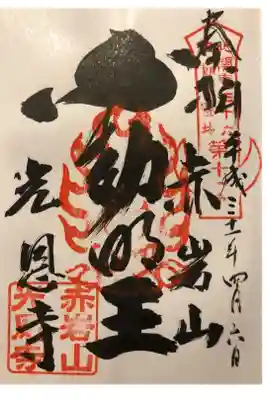 奉拝
平成三十一年四月六日
赤岩山
不動明王
光恩寺
赤岩山
光恩寺